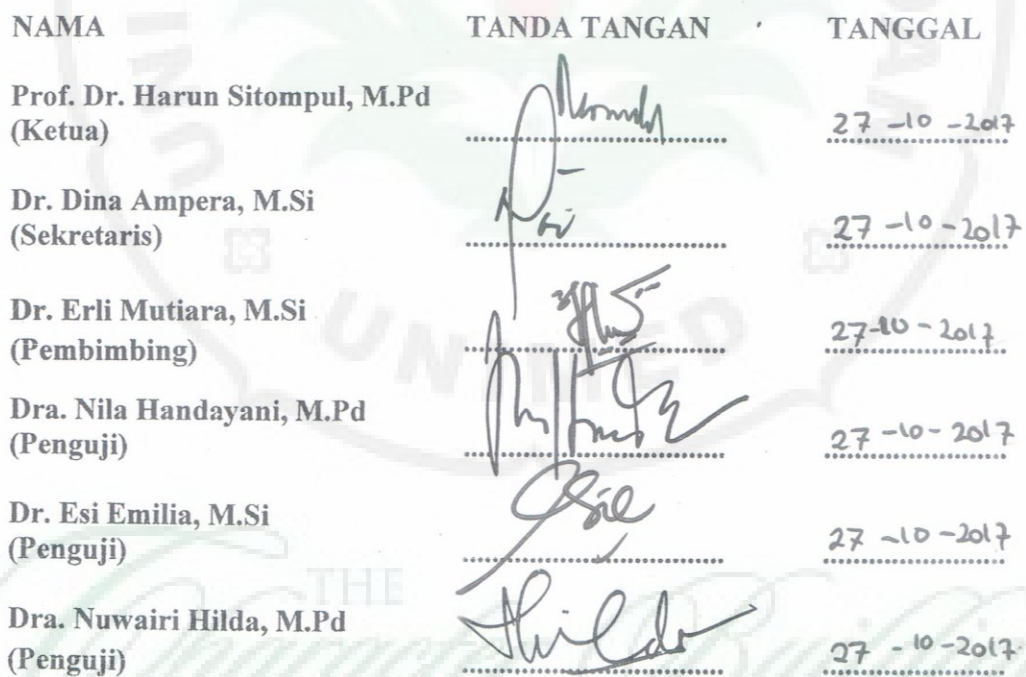 NAMA TANDA TANGAN TANGGAL
Prof. Dr. Harun Sitompul, M.Pd
(Ketua) 27-10-2017
Dr. Dina Ampera, M.Si
(Sekretaris) 27-10-2017
Dr. Erli Mutiara, M.Si
(Pembimbing) 27-10-2017
Dra. Nila Handayani, M.Pd
(Penguji) 27-10-2017
Dr. Esi Emilia, M.Si
(Penguji) 27-10-2017
THE
Dra. Nuwairi Hilda, M.Pd
(Penguji) 27-10-2017
UNIMED